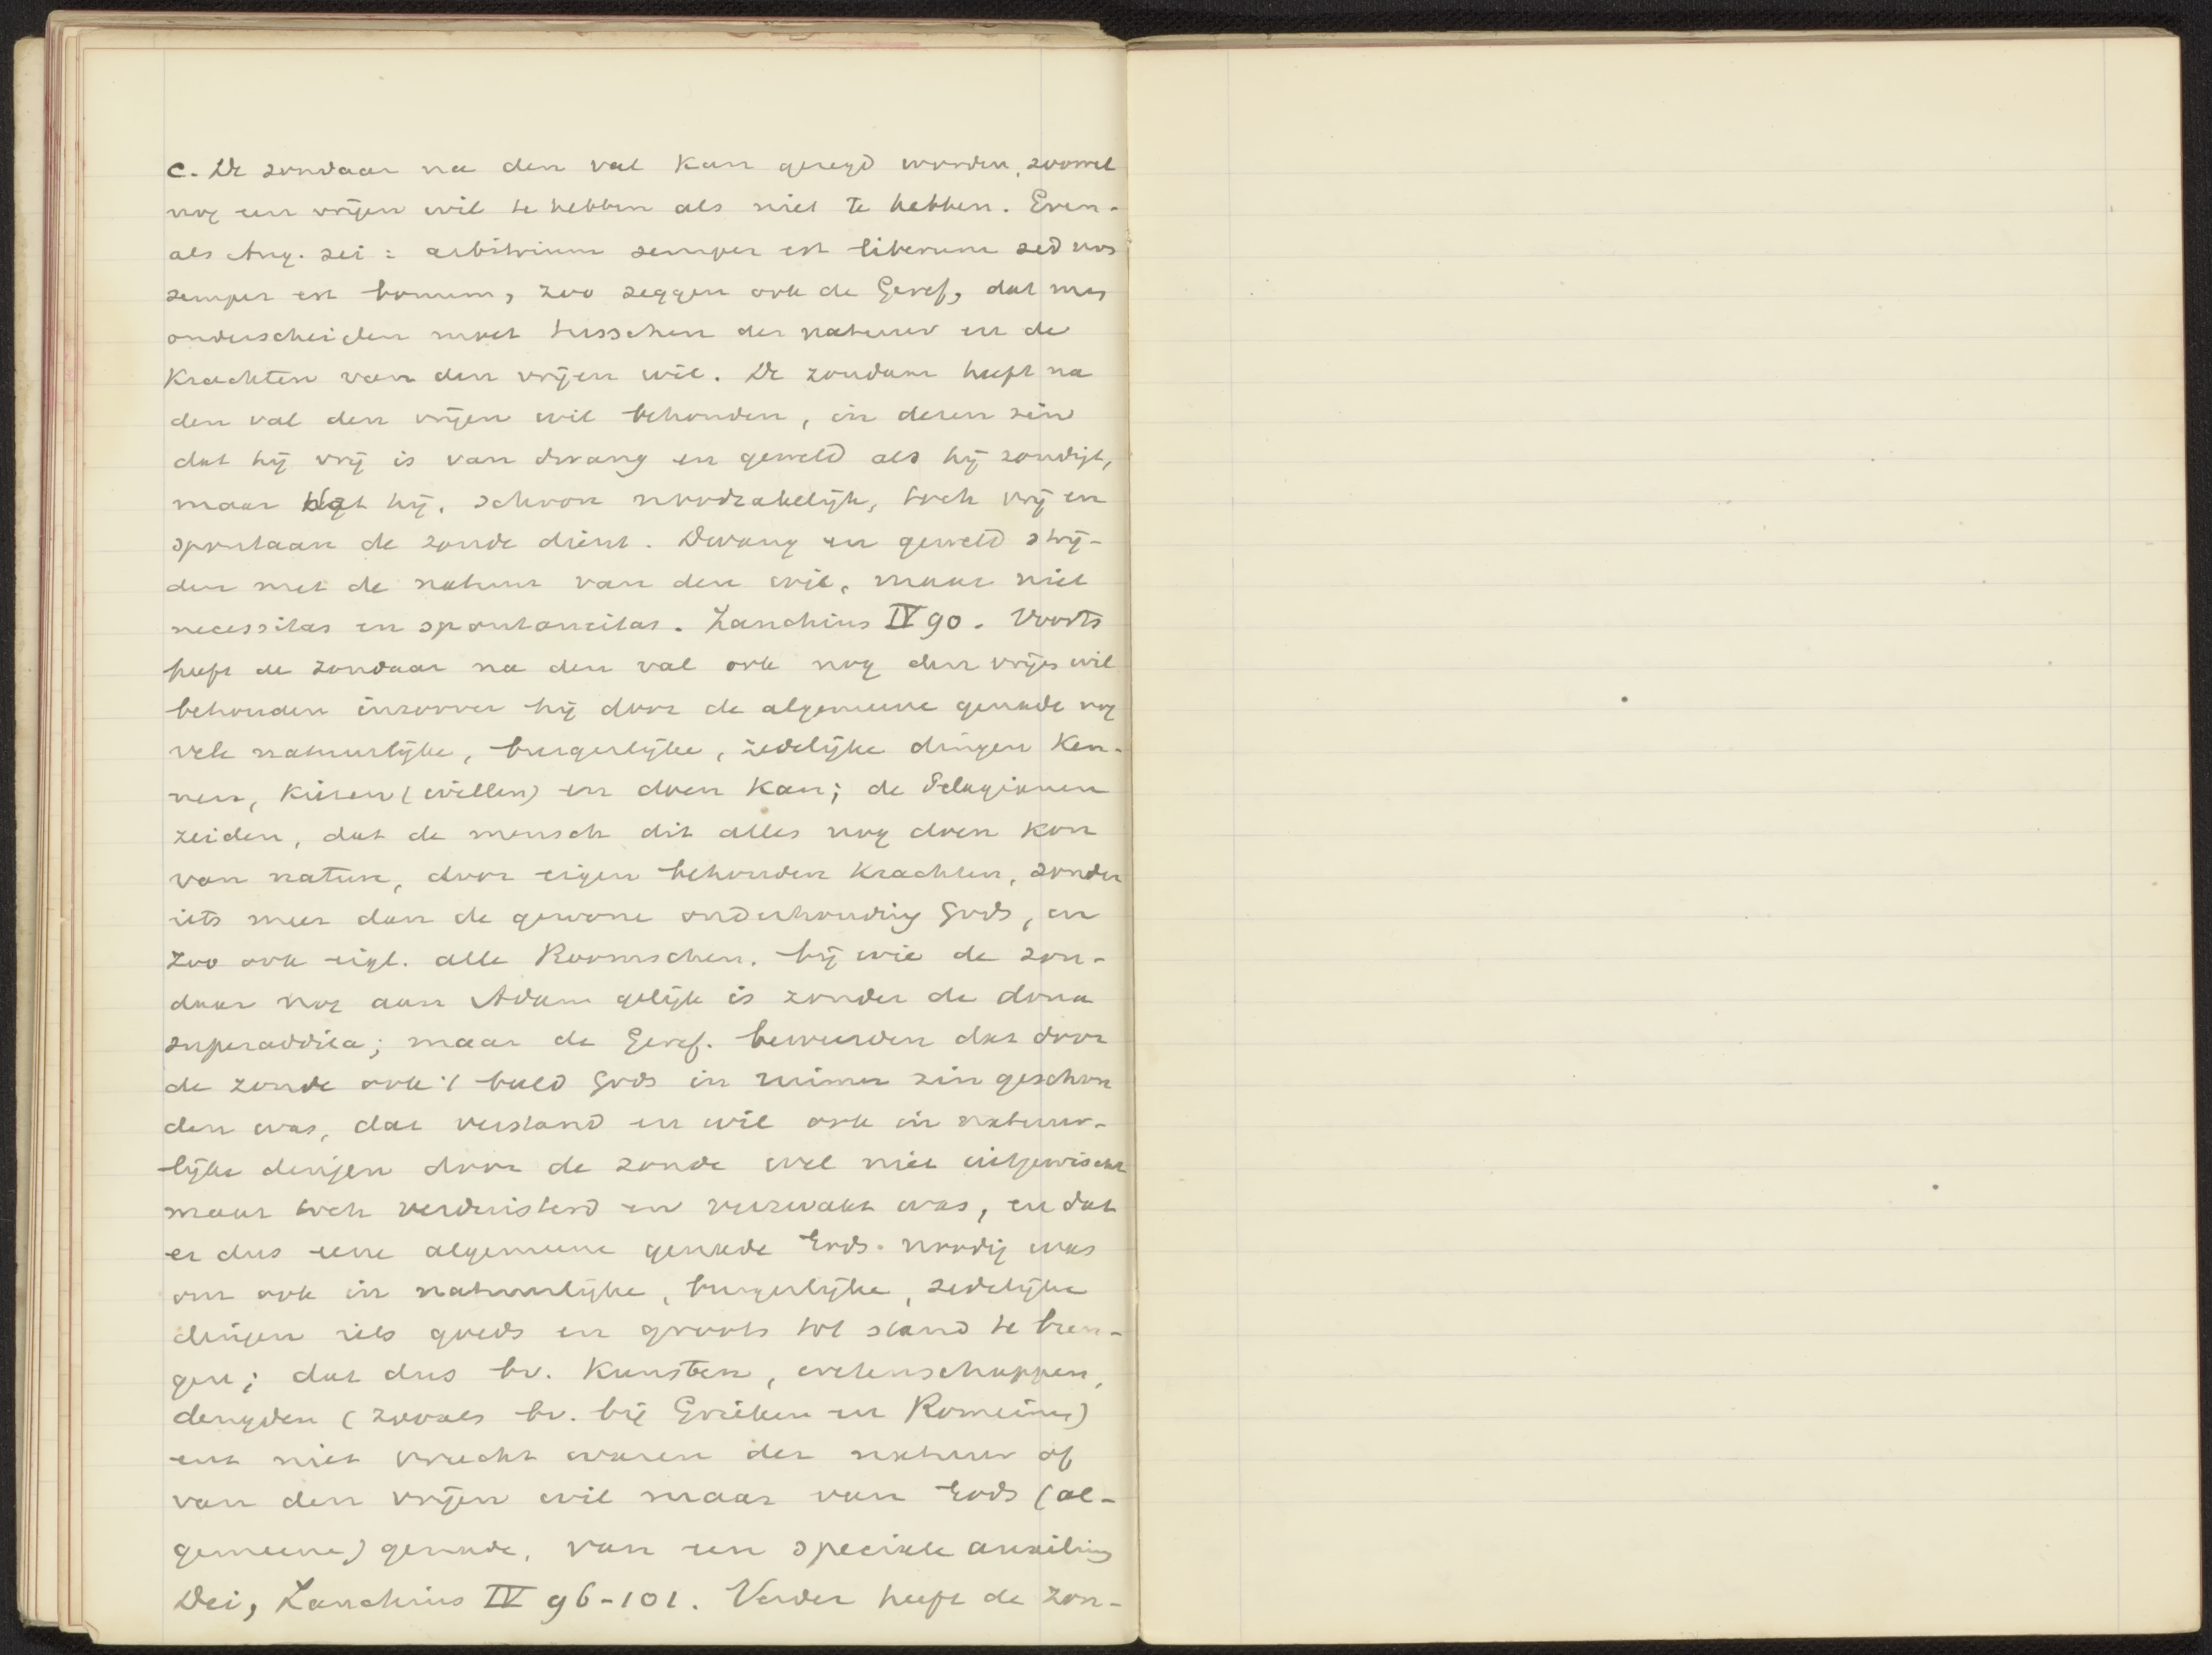 c. De zondaar na den val kan gezegd worden, zoowel
nog een vrijen wil te hebben als niet te hebben. Even-
als Aug. zei: arbitrium semper est liberum sed non
semper est bonum, zoo zeggen ook de Geref, dat men
onderscheiden moet tusschen de natuur en de
krachten van den vrijen wil. De zondaar heeft na
den val den vrijen wil behouden, in dezen zin
dat hij vrij is van dwang en geweld als hij zondigt,
maar hij, schoon noodzakelijk, toch vrij en
spontaan de zonde dient. Dwang en geweld strij-
den met de natuur van den wil, maar niet
necessitas en spontaneitas. Zanchius IV 90. Voorts
heeft de zondaar na den val ook nog den vrijen wil
behouden inzoover hij door de algemeene genade nog
vele natuurlijke, burgerlijke, zedelijke dingen ken-
nen, kiezen (willen) en doen kan; de Pelagianen
zeiden, dat de mensch dit alles nog doen kon
van nature, door eigen behouden krachten, zonder
iets meer dan de gewone onderhouding Gods, en
zoo ook eigl. alle Roomschen, bij wie de zon-
daar nog aan Adam gelijk is zonder de dona
superaddita; maar de Geref. beweerden dat door
de zonde ook 't beeld Gods in ruimer zin geschon
den was, dat verstand en wil ook in natuur-
lijke dingen door de zonde wel niet uitgewischt
maar toch verduisterd en verzwakt was, en dat
er dus eene algemeene genade Gods. noodig was
om ook in natuurlijke, burgerlijke, zedelijke
dingen iets goeds en groots tot stand te bren-
gen; dat dus bv. kunsten, wetenschappen,
deugden (zooals bv. bij Grieken en Romeinen)
enz niet vrucht waren der natuur of
van den vrijen wil maar van Gods (al-
gemeene) genade, van een speciale auxilium
Dei, Zanchius IV 96-101. Verder heeft de zon-